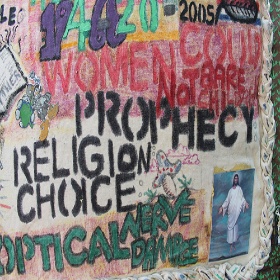 1420
2005/
WOMEN COULD
NOT
PROPHECY
RELIGION
CHOICE
OPTICAL NERVE
DAMAGE